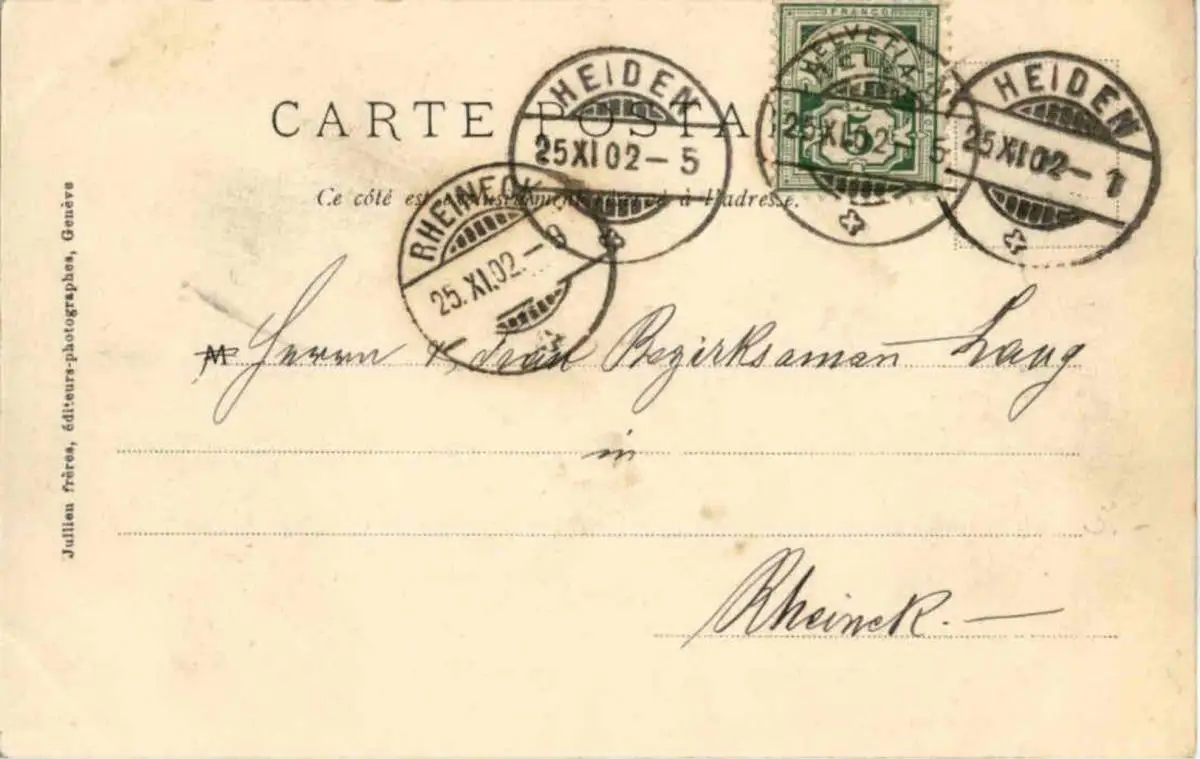 FRANCO
HELVETIA
5
HEIDEN
25 XI 02 - 5
25 XI 02 - 5
HEIDEN
25 XI 02 - 1
CARTE POSTA
RHEINECK
25. XI. 02. - 8
Ce côté est exclusivement réservé à l'adresse.
M Herrn & Frau Bezirksaman̄ Lang
in
Rheineck. —
Jullien frères, éditeurs-photographes, Genève